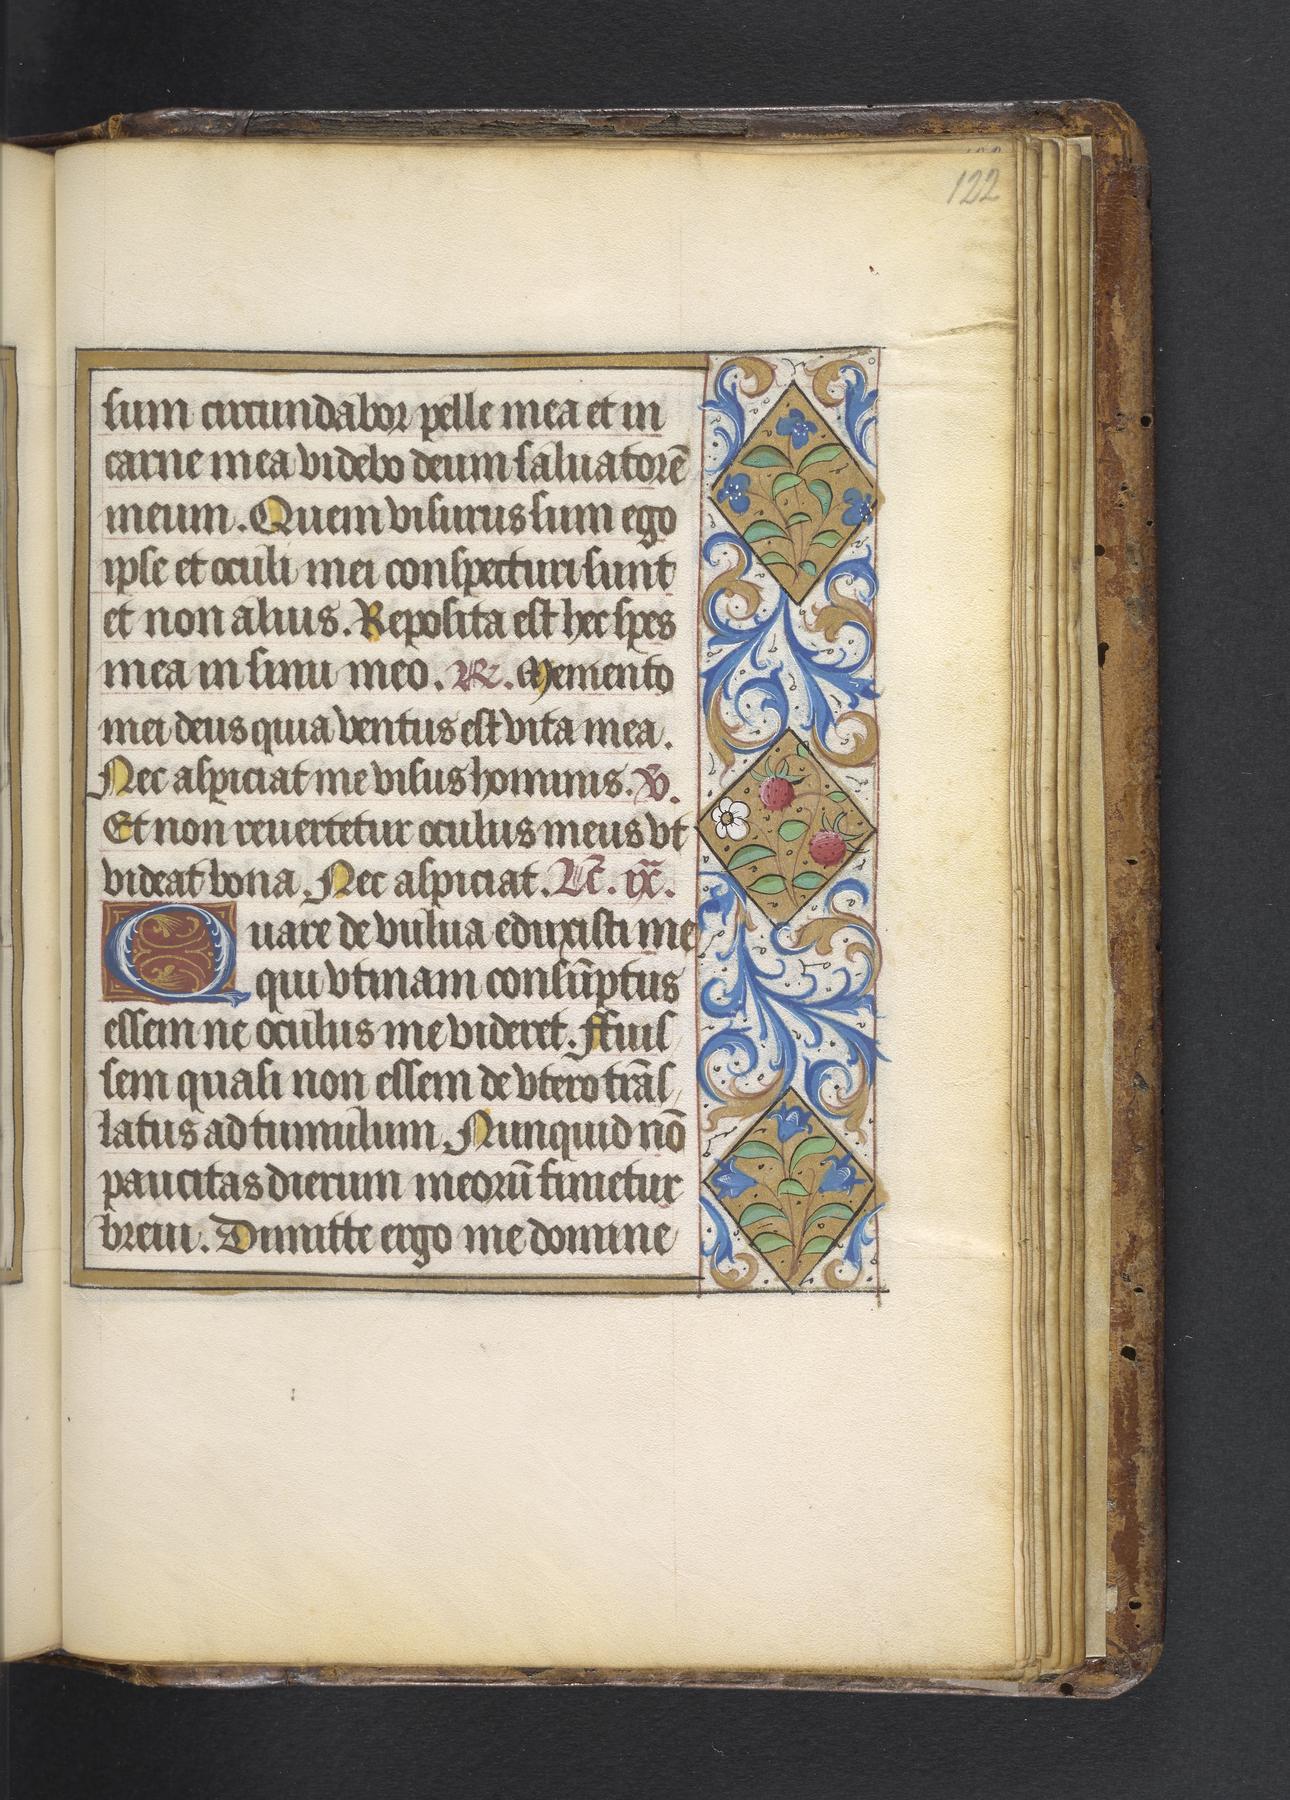 122
sum circundabor pelle mea et in
carne mea videbo deum saluatorē
meum. Quem visurus sum ego
ipse et oculi mei conspecturi sunt
et non alius. Reposita est hec spes
mea in sinu meo. R. Memento
mei deus quia ventus est vita mea.
Nec aspiciat me visus hominis. V.
Et non reuertetur oculus meus vt
videat bona. Nec aspiciat. Lc̄. ix.
Quare de vulua eduxisti me
qui vtinam consūptus
essem ne oculus me videret. Ffuis
sem quasi non essem de vtero trās
latus ad tumulum. Nunquid nō
paucitas dierum meorū finietur
breui. Dimitte ergo me domine